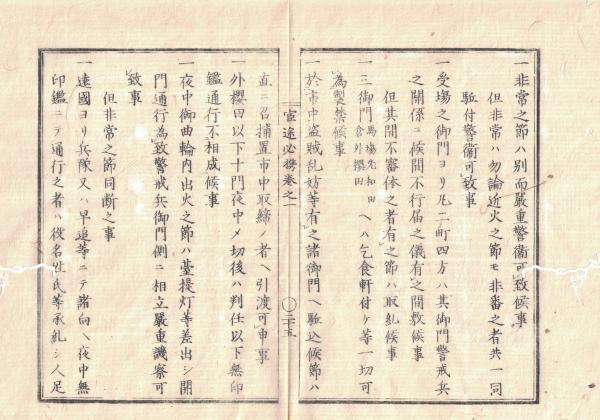 一非常之節ハ別而嚴重警衞可致候事
但非常ハ勿論近火之節モ非番之者共一同
駈付警衞可致事
一受場之御門ヨリ凡二町四方ハ其御門警戒兵
之關係ニ候間不行届之儀有之間敷候事
但其間不審体之者有之節ハ取糺候事
一三御門 馬場先和田倉外櫻田 ヘハ乞食軒付ケ等一切可
為製禁候事
一於市中盗賊乱妨等有之諸御門ヘ駈込候節ハ
宦途必携巻之一 〇二十五
直ニ召捕置市中取締ノ者ヘ引渡可申事
一外櫻田以下十門夜中〆切後ハ判任以下無印
鑑通行不相成候事
一夜中御曲輪内出火之節ハ臺提灯等差出シ開
門通行為致警戒兵御門側ニ相立嚴重譏察可
致事
但非常之節同断之事
一遠國ヨリ兵隊又ハ早追等ニテ諸向ヘ夜中無
印鑑ニテ通行之者ハ役名姓氏等承糺シ人足